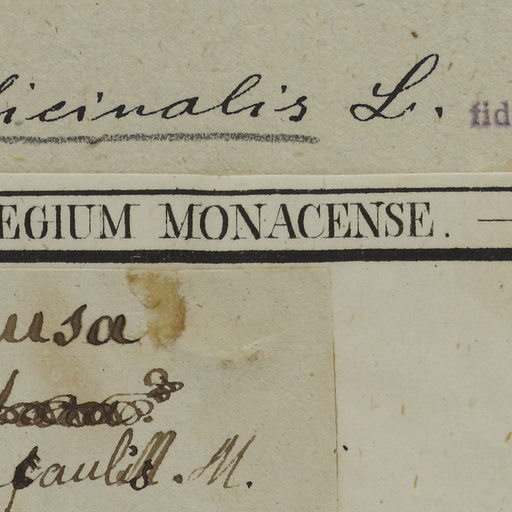 icinalis L. fid
EGIUM MONACENSE.
usa
caulis. M.